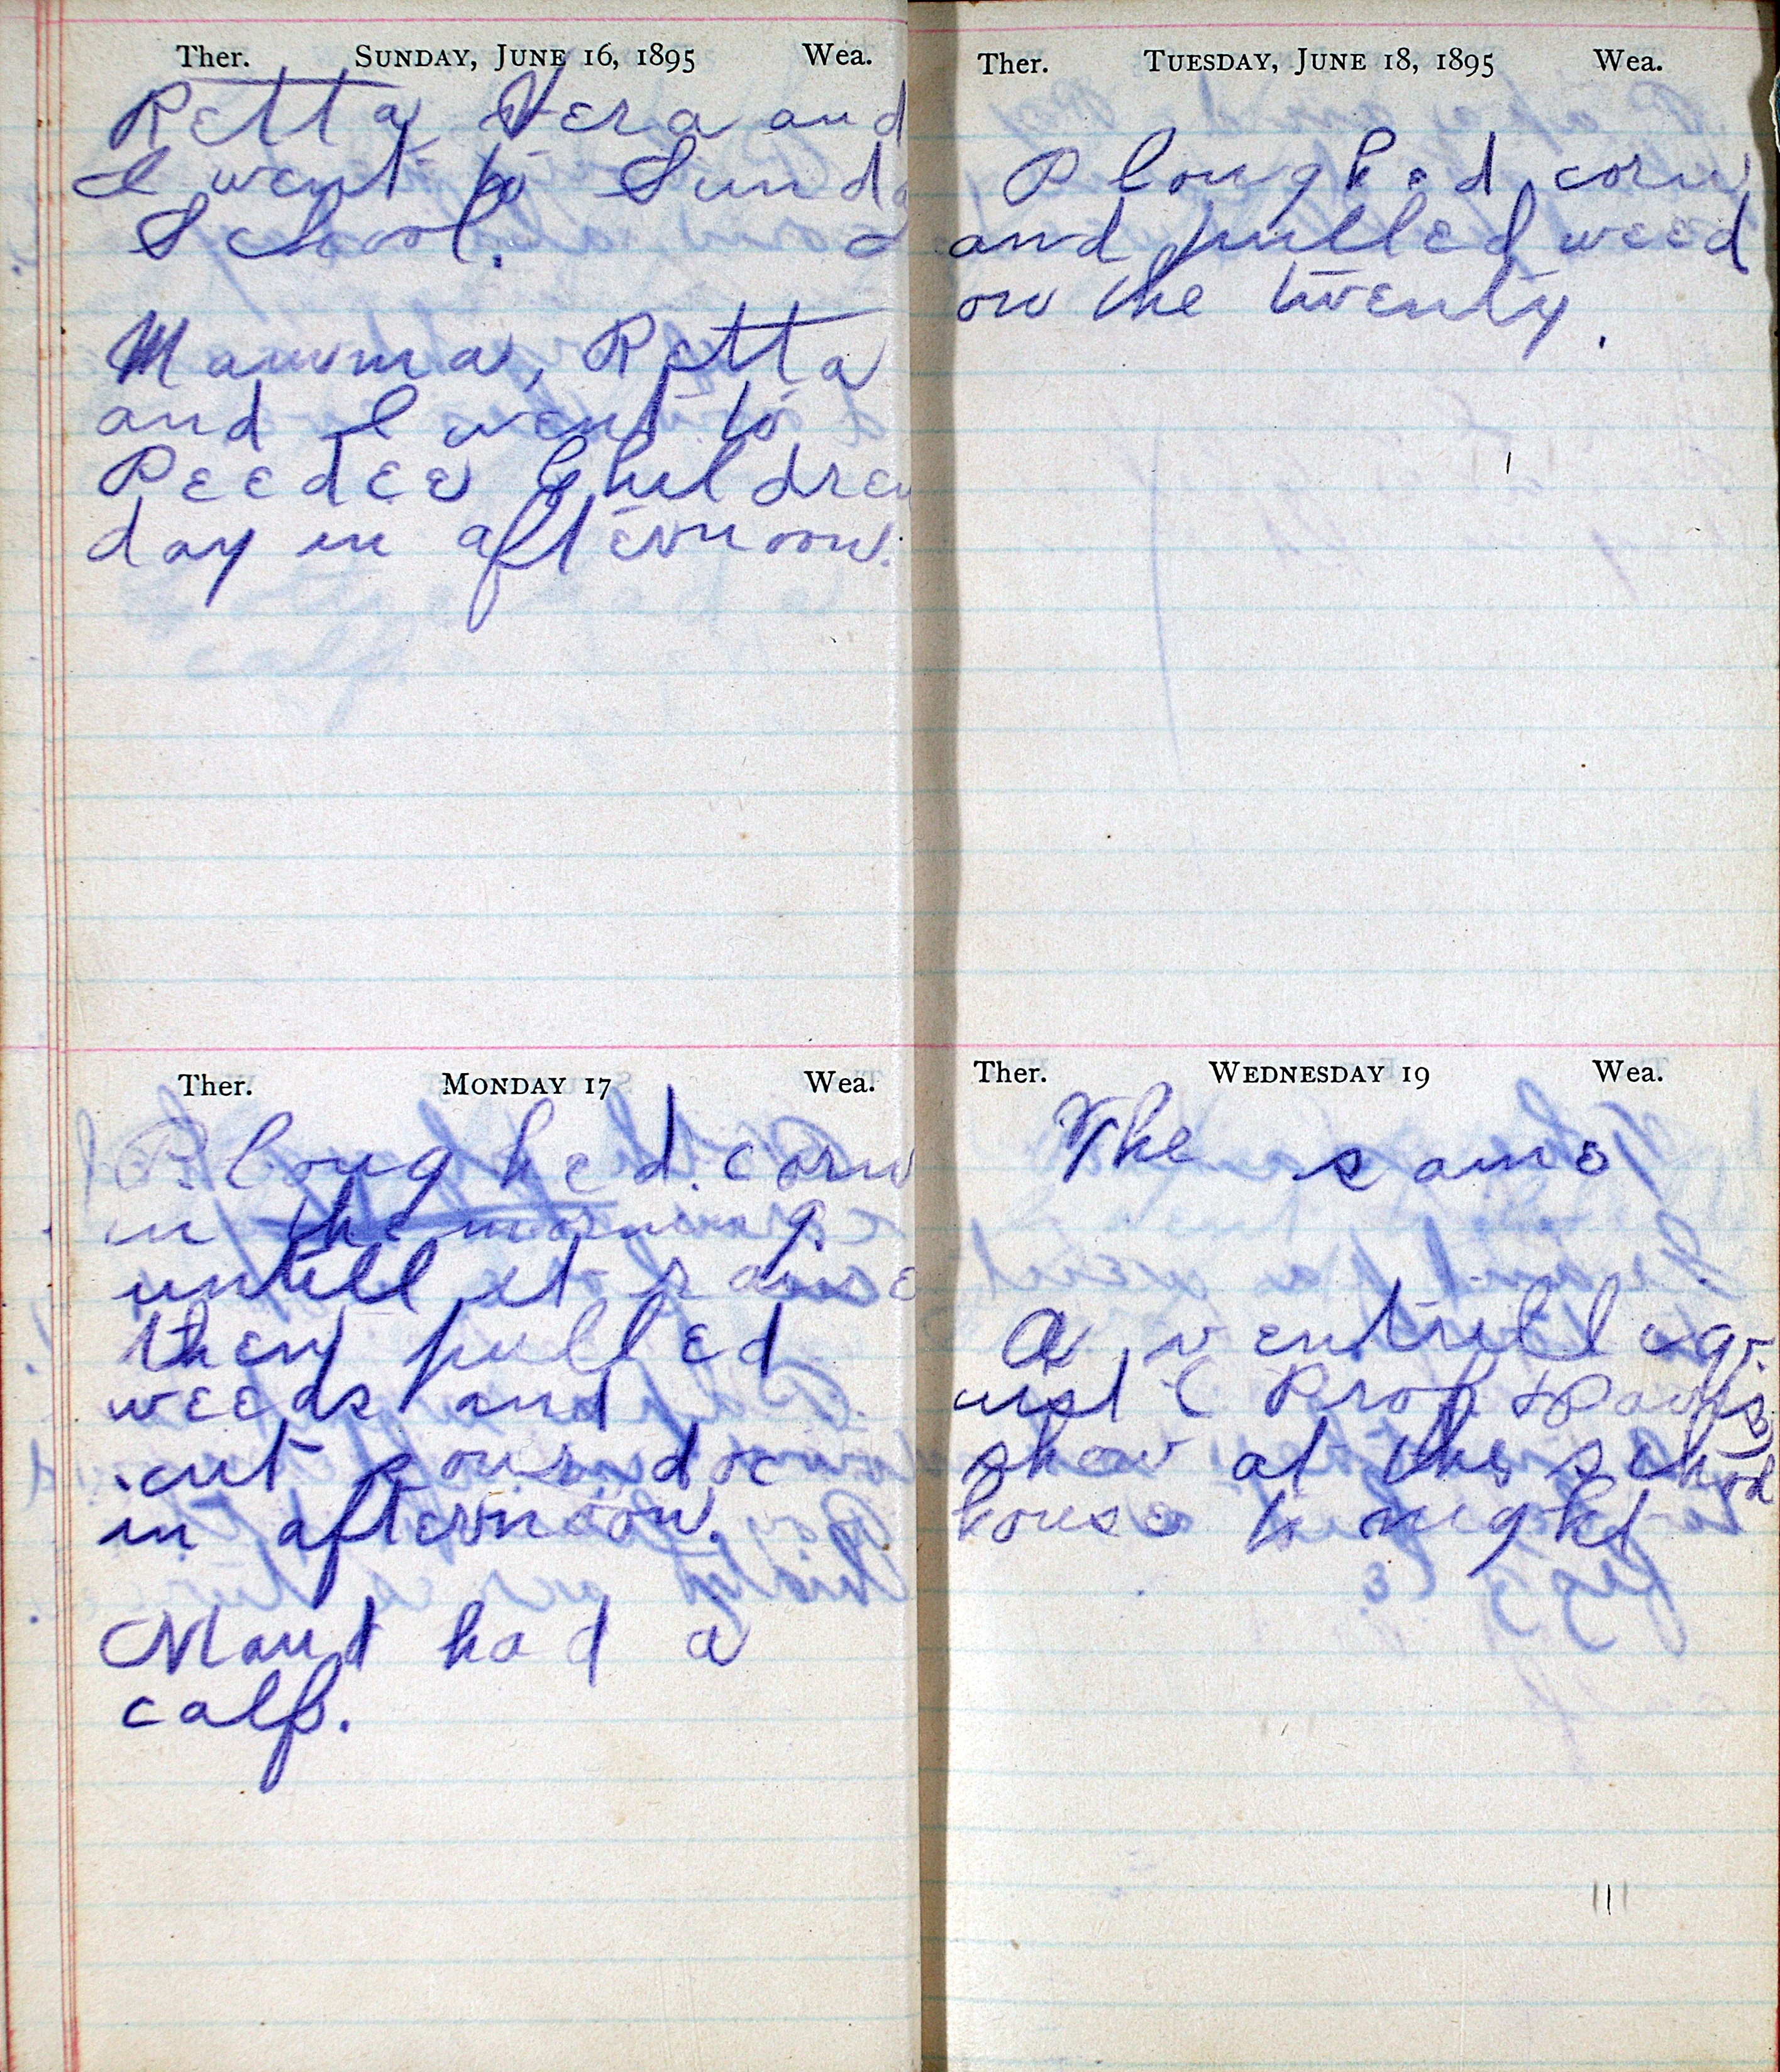 Ther. SUNDAY, JUNE 16, 1895 Wea.
Retta, Vera and
I went to Sunda
School.
Mamma, Retta
and I went to
Peedee Children
day in afternoon.
Ther. MONDAY 17 Wea.
Ploughed corn
in the morning
untill it raine
then pulled
weeds and
cut sourdoc
in afternoon.
Maud had a
calf.
Ther. TUESDAY, JUNE 18, 1895 Wea.
Ploughed corn
and pulled weed
on the twenty.
Ther. WEDNESDAY 19 Wea.
The same
A ventriloq-
uist (Prof.
show at the school
house to night